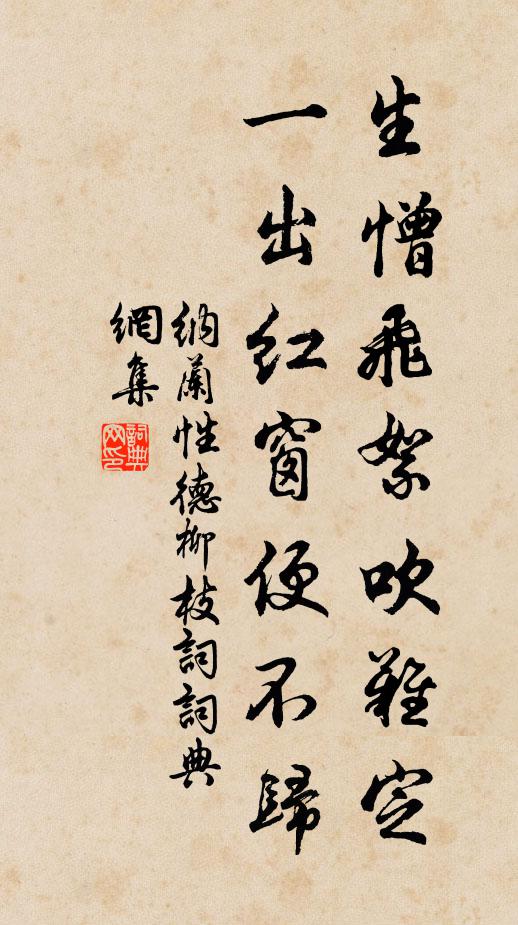 生憎飛絮吹難定
一出紅窗便不歸
納蘭性德柳枝詞詞典
網集
詞典
网印